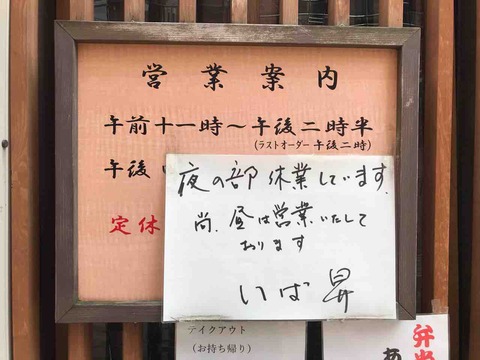 営業案内
午前十一時～午後二時半
(ラストオーダー午後二時)
午後
定休
夜の部休業しています.
尚、昼は営業いたして
おります
いば昇
テイクアウト
(お持ち帰り)
弁当